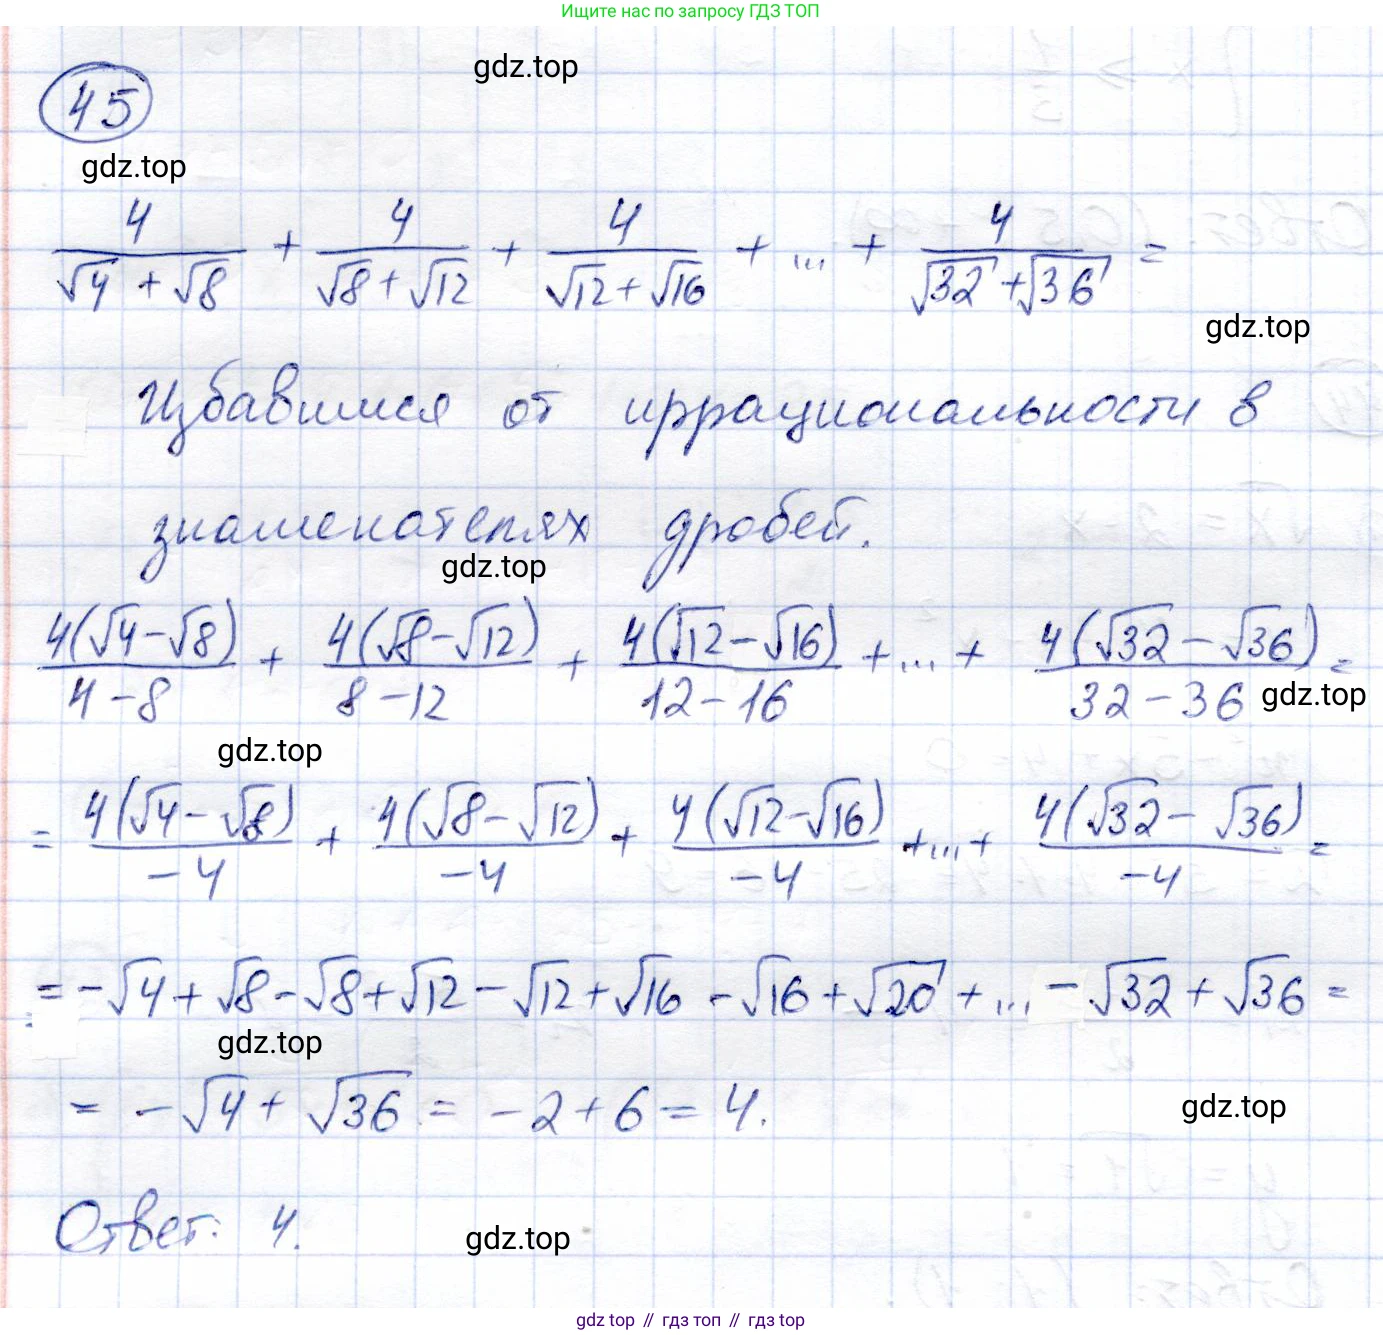 Ищите нас по запросу ГДЗ ТОП
gdz.top
45
gdz.top
4/(√4 + √8) + 4/(√8 + √12) + 4/(√12 + √16) + ... + 4/(√32 + √36) =
gdz.top
Избавимся от иррациональности в
знаменателях дробей.
gdz.top
4(√4 - √8)/(4 - 8) + 4(√8 - √12)/(8 - 12) + 4(√12 - √16)/(12 - 16) + ... + 4(√32 - √36)/(32 - 36) =
gdz.top
gdz.top
= 4(√4 - √8)/(-4) + 4(√8 - √12)/(-4) + 4(√12 - √16)/(-4) + ... + 4(√32 - √36)/(-4) =
= -√4 + √8 - √8 + √12 - √12 + √16 - √16 + √20 + ... - √32 + √36 =
gdz.top
= -√4 + √36 = -2 + 6 = 4.
gdz.top
Ответ: 4.
gdz.top
gdz top // гдз топ // gdz top